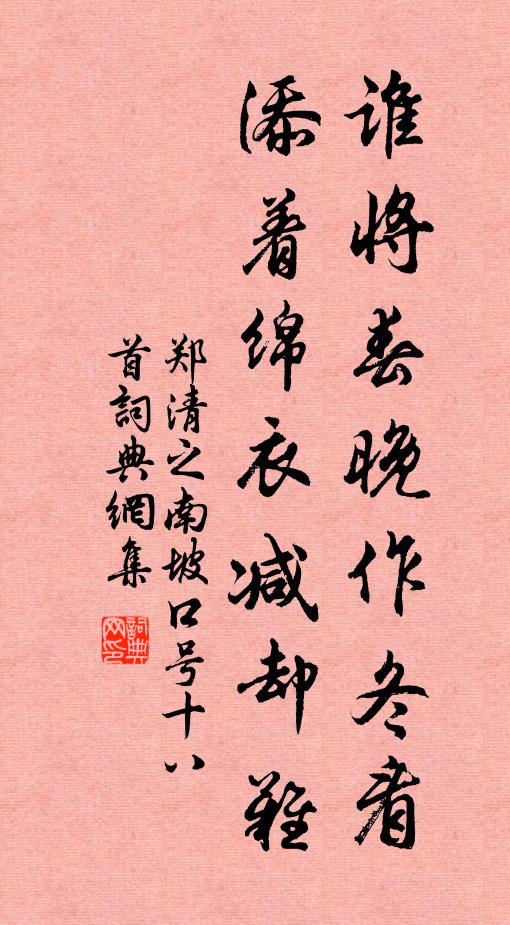 谁将春晚作冬看
添着绵衣减却难
郑清之南坡口号十八
首词典網集
詞典网印